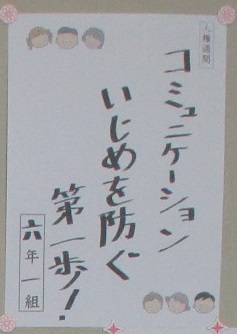 人権週間
コミュニケーション
いじめを防ぐ
第一歩!
六年一組